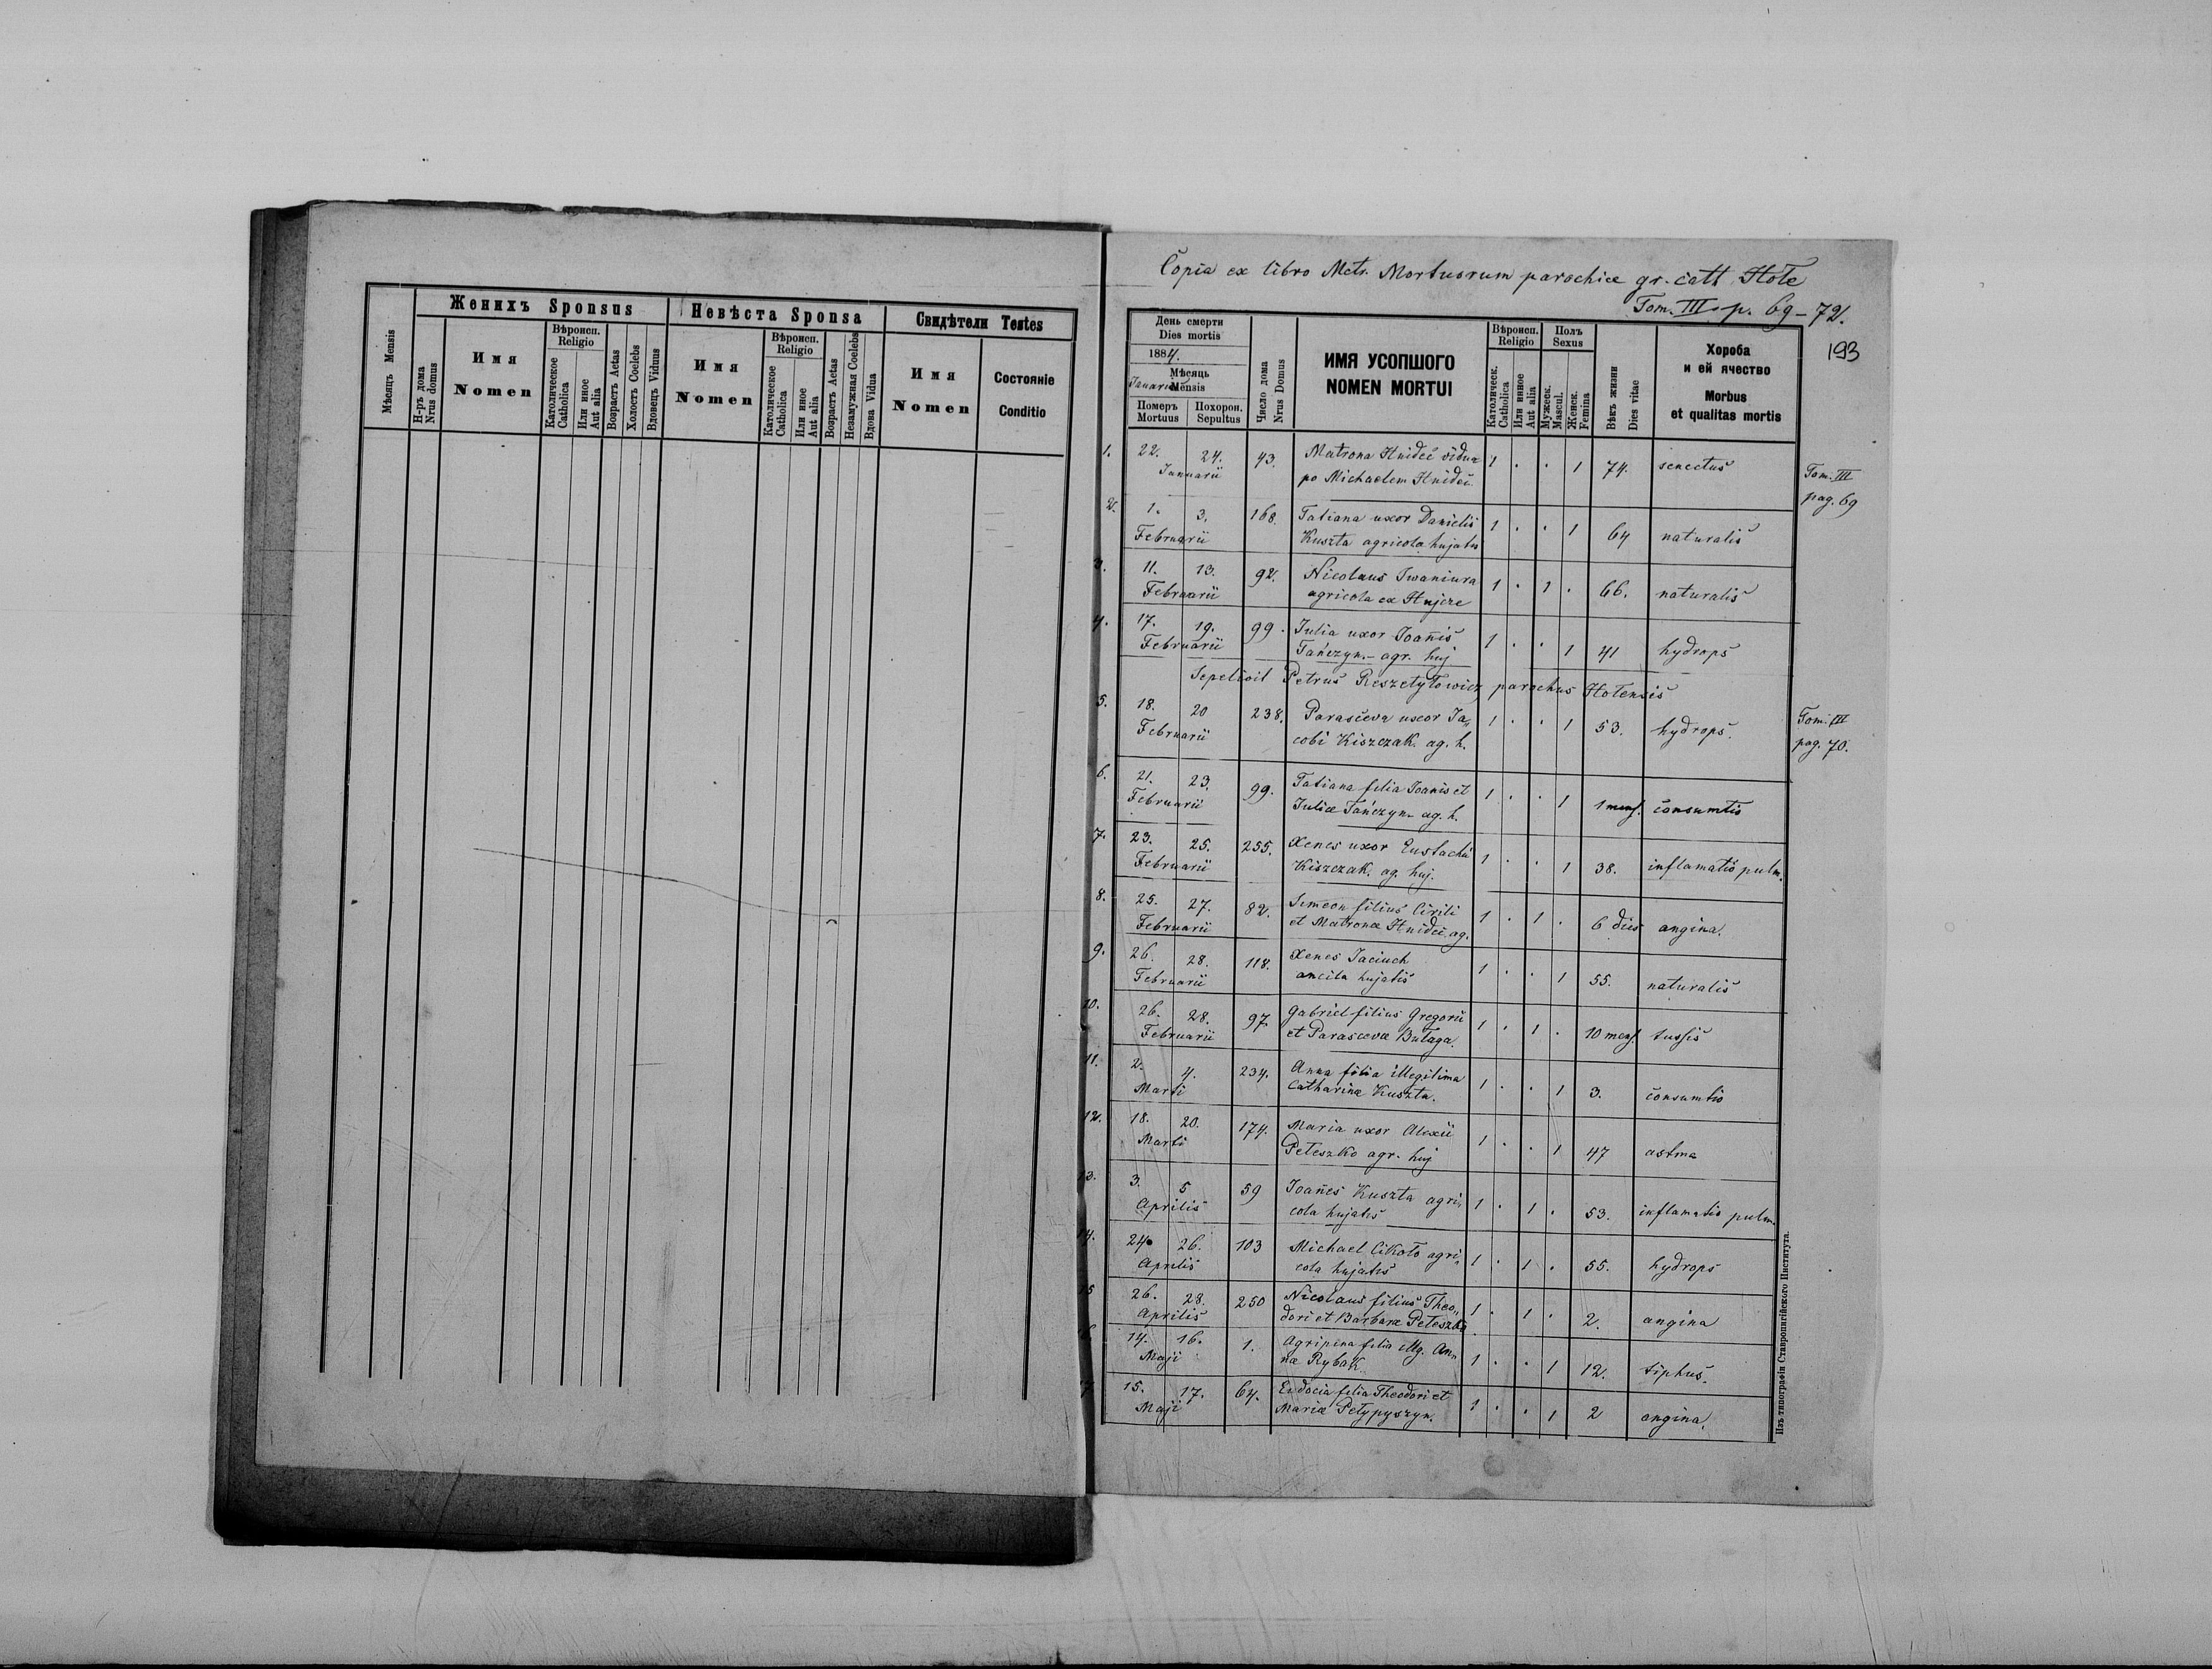 Женихъ Sponsus
Невѣста Sponsa
Свидѣтели Testes
Мѣсяцъ Mensis
Н-ръ дома
Nrus domus
Имя
Nomen
Вѣроисп.
Religio
Католическое
Catholica
Или иное
Aut alia
Возрастъ Aetas
Холостъ Coelebs
Вдовецъ Viduus
Имя
Nomen
Вѣроисп.
Religio
Католическое
Catholica
Или иное
Aut alia
Возрастъ Aetas
Незамужная Coelebs
Вдова Vidua
Имя
Nomen
Состояніе
Conditio
Copia ex libro Metr. Mortuorum parochiæ gr. cath Hołe
Tom. III. p. 69-72.
193
День смерти
Dies mortis
1884.
Мѣсяць
Januarii Mensis
Померъ
Mortuus
Похорон.
Sepultus
Число дома
Nrus Domus
ИМЯ УСОПШОГО
NOMEN MORTUI
Вѣроисп.
Religio
Католическ.
Catholica
Или инное
Aut alia
Полъ
Sexus
Мужеск.
Mascul.
Женск.
Femina
Вѣкъ жизни
Dies vitae
Хороба
и ей ячество
Morbus
et qualitas mortis
1. 22. 24. 43. Matrona Hnideć vidua 1 . . 1 74. senectus
Januarii po Michaelem Hnideć
Tom. III
pag. 69
2. 1. 3. 168. Tatiana uxor Danielis 1 . . 1 64 naturalis
Februarii Kuszta agricola hujatis
3. 11. 13. 92. Nicolaus Iwaniura 1 . 1 . 66. naturalis
Februarii agricola ex Hujcze
4. 17. 19. 99. Julia uxor Joañis 1 . . 1 41 hydrops
Februarii Tańczyn.- agr. huj
Sepelivit Petrus Reszetyłowicz parochus Hołensis
5. 18. 20 238. Parasceva uxor Ja„ 1 . . 1 53. hydrops.
Februarii cobi Kiszczak. ag. h.
Tom. III
pag. 70.
6. 21. 23. 99. Tatiana filia Joanis et 1 . . 1 1 mens. consumtio
Februarii Juliæ Tańczyn ag. h.
7. 23. 25. 255. Xenes uxor Eustachii 1 . . 1 38. inflamatio pulm.
Februarii Kiszczak. ag. huj.
8. 25. 27. 82. Simeon filius Cirili 1 . 1 . 6 dies angina.
Februarii et Matronæ Hnideć. ag.
9. 26. 28. 118. Xenes Jaciuch 1 . . 1 55. naturalis
Februarii ancila hujatis
10. 26. 28. 97. Gabriel filius Gregorii 1 . 1 . 10 mens. tussis
Februarii et Parascevæ Bułaga.
11. 2. 4. 234. Anna filia illegitima 1 . . 1 3. consumtio
Marti Catharinæ Kuszta.
12. 18. 20. 174. Maria uxor Alexii 1 . . 1 47 astma
Marti Peteszko agr. huj
13. 3. 5 59 Joañes Kuszta agri„ 1 . 1 . 53. inflamatio pulm.
Aprilis cola hujatis
14. 24. 26. 103 Michael Cikoło agri„ 1 . 1 . 55. hydrops
Aprilis cola hujatis
15 26. 28. 250 Nicolaus filius Theo„ 1 . 1 . 2. angina
Aprilis dori et Barbaræ Peteszko
14. 16. 1. Agripena filia illg. An„ 1 . . 1 12. tiphus.
Maji næ Rybak
15. 17. 64. Eudocia filia Theodori et 1 . . 1 2 angina.
Maji Mariæ Petypyszyn.
Изъ типографіи Ставропигійского Института.